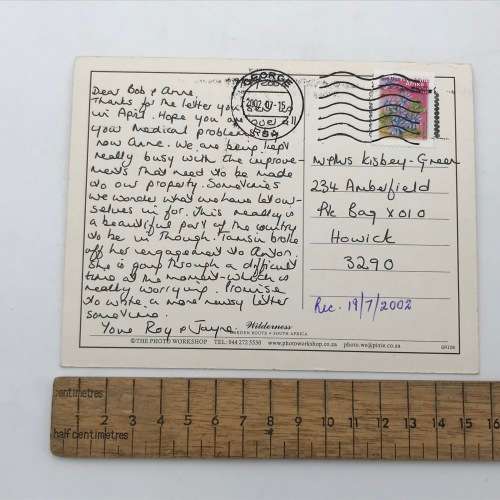 Dear Bob & Anne.
Thanks for the letter you
in April. Hope you are
your medical problems
now Anne. We are being kept
really busy with the improve-
ments that need to be made
to our property. Sometimes
we wonder what we have let our-
selves in for. This really is
a beautiful part of the country
to be in though. Tamsin broke
off her engagement to Anton.
She is going through a difficult
time at the moment - which is
really worrying. Promise
to write a more newsy letter
sometime.
Love Roy & Jayne.
GEORGE
2002.07-15
RSA
Kisbey-Green
234 Amberfield
P/c Bag X010
Howick
3290
Rec. 19/7/2002
Wilderness
GARDEN ROUTE • SOUTH AFRICA
©THE PHOTO WORKSHOP TEL: 044 272 5530 www.photoworkshop.co.za photo.we@pixie.co.za
centimetres
1 2 3 4 5 6 7 8 9 10 11 12 13 14 15 16
half centimetres